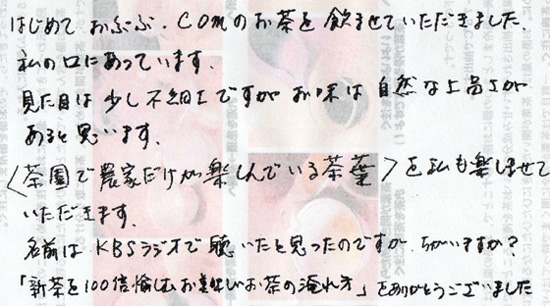 はじめて おぶぶ.comのお茶を飲ませていただきました.
私の口にあっています.
見た目は少し不細工ですがお味は自然な上品さが
あると思います.
〈茶園で農家だけが楽しんでいる茶葉〉を私も楽しませて
いただきます.
名前はKBSラジオで聴いたと思ったのですが、ちがいますか?
「新茶を100倍愉しむお美味しいお茶の淹れ方」をありがとうございました